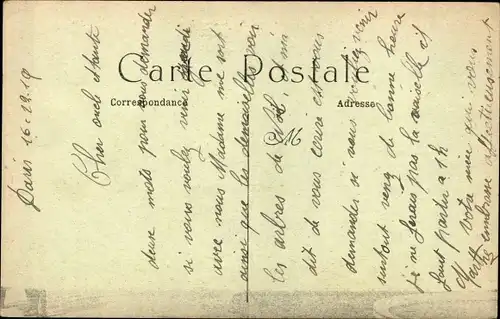 Carte Postale
Correspondance
Adresse
Paris 16-12-19
Cher oncle et tante
deux mots pour vous demander
si vous voulez venir
avec nous Madame me
ainsi que les demoiselles voir
les arbres de Noël, et m'a
dit de vous écrire et vous
demander si vous voulez venir
surtout venez de bonne heure
je ne ferais pas la vaisselle et
faut partir à 1h
votre nièce qui vous
embrasse affectueusement